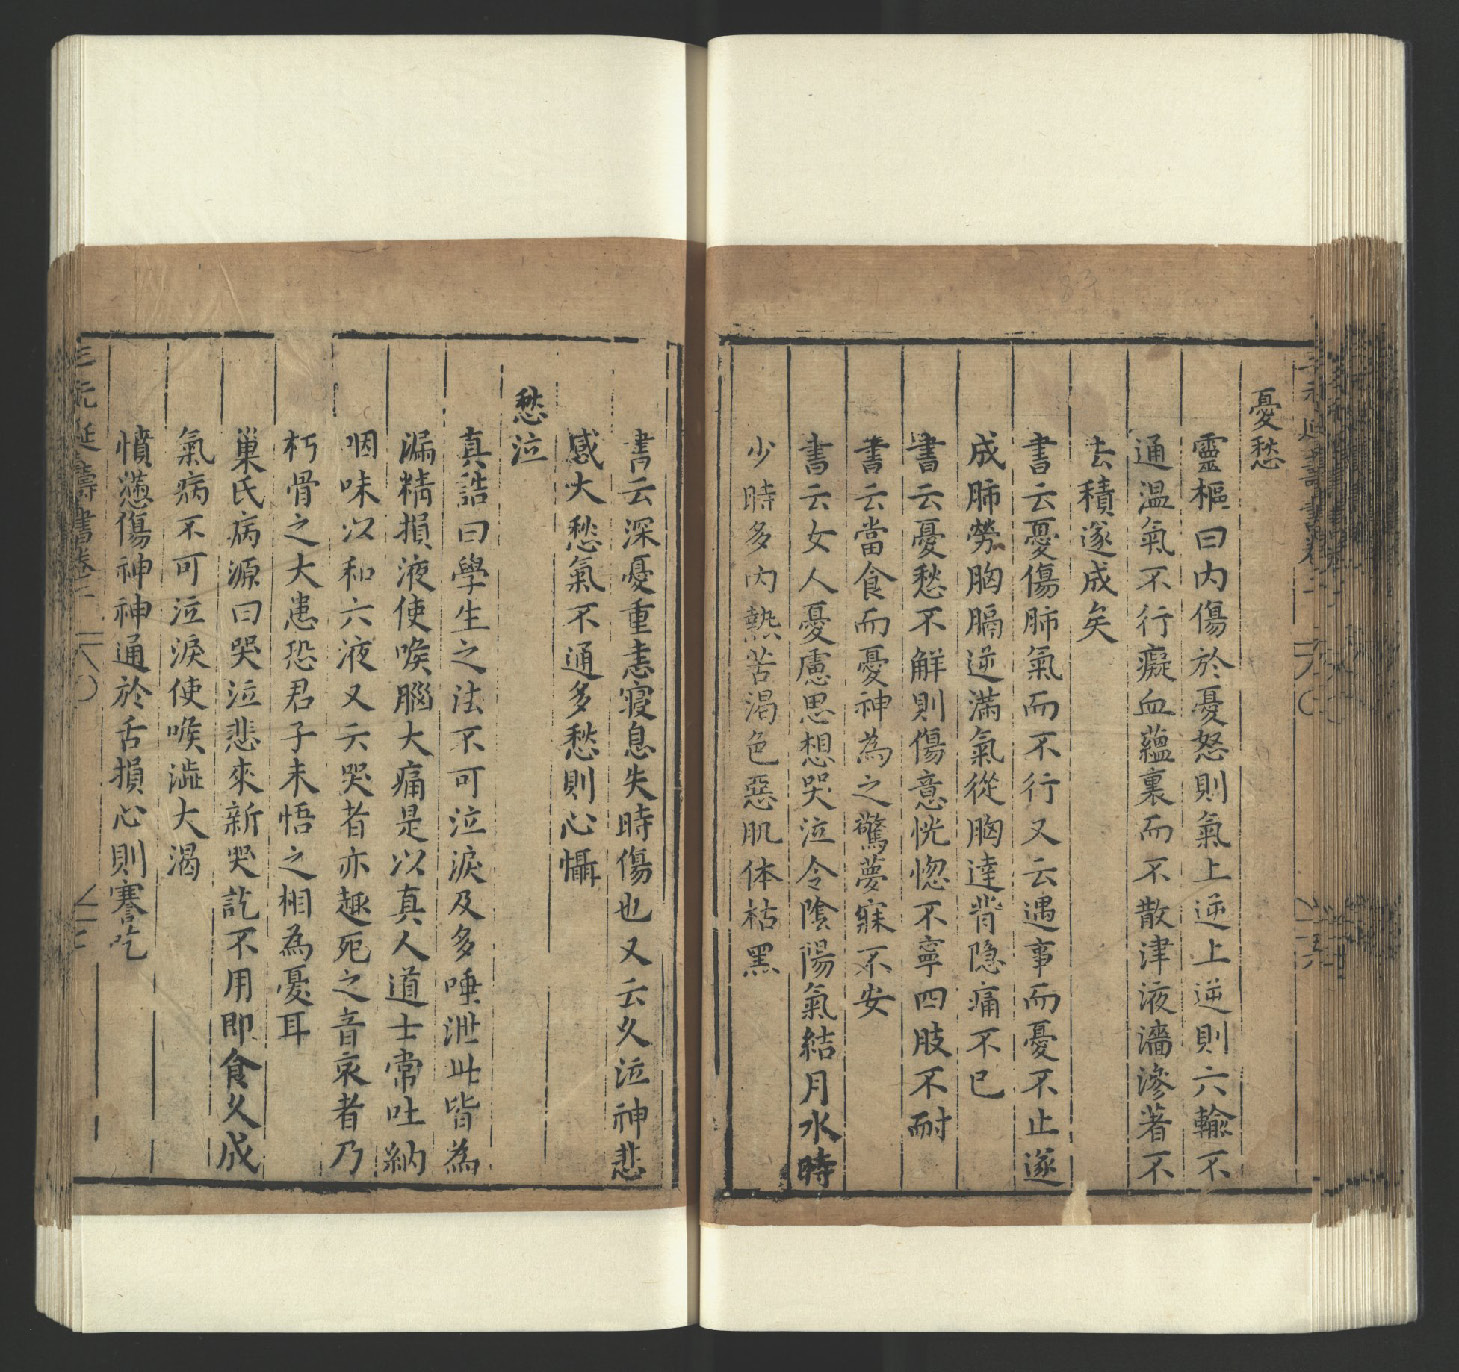 憂愁
靈樞曰内傷於憂怒則氣上逆上逆則六輸不
通温氣不行癡血蘊裏而不散津液濇滲著不
去積遂成矣
書云憂傷肺氣而不行又云遇事而憂不止遂
成肺勞胸膈逆滿氣從胸達背隐痛不已
書云憂愁不解則傷意恍惚不寧四肢不耐
書云當食而憂神為之驚夢寐不安
書云女人憂慮思想哭泣令隂陽氣結月水時
少時多内熱苦渴色惡肌体枯黑
書云深憂重恚寢息失時傷也又云久泣神悲
感大愁氣不通多愁則心懾
愁泣
真誥曰學生之法不可泣淚及多唾泄此皆為
漏精損液使喉腦大痛是以真人道士常吐納
咽味以和六液又云哭者亦趣死之音哀者乃
朽骨之大患恐君子未悟之相為憂耳
巢氏病源曰哭泣悲來新哭訖不用即食久成
氣病不可泣淚使喉澁大渴
憤懣傷神神通於舌損心則謇吃
三元延壽書卷